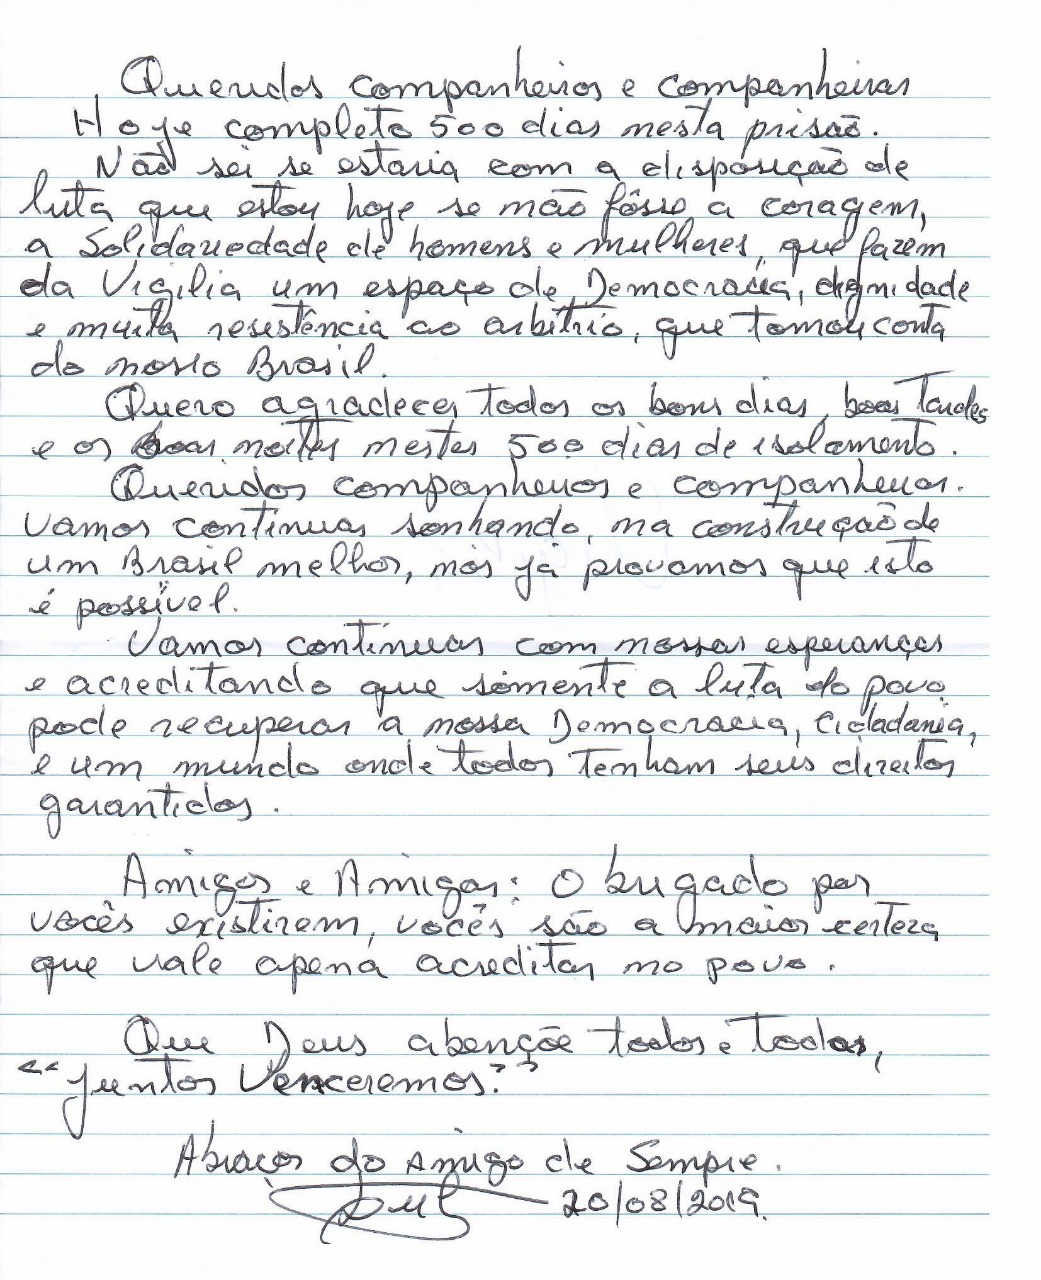 Queridos companheiros e companheiras
Hoje completo 500 dias nesta prisão.
Não sei se estaria com a disposição de
luta que estou hoje se não fôsse a coragem,
a Solidariedade de homens e mulheres, que fazem
da Vigília um espaço de Democracia, dignidade
e muita resistência ao arbítrio, que tomou conta
do nosso Brasil.
Quero agradecer todos os bons dias, boas Tardes
e os boas noites nestes 500 dias de isolamento.
Queridos companheiros e companheiras.
Vamos continuar sonhando, na construção de
um Brasil melhor, nós já provamos que isto
é possível.
Vamos continuar com nossas esperanças
e acreditando que sòmente a luta do povo
pode recuperar a nossa Democracia, Cidadania,
e um mundo onde todos Tenham seus direitos
garantidos.
Amigos e Amigas: Obrigado por
vocês existirem, vocês são a maior certeza
que vale apena acreditar no povo.
Que Deus abençõe todos e todas,
"Juntos Venceremos."
Abraços do Amigo de Sempre.
20/08/2019.